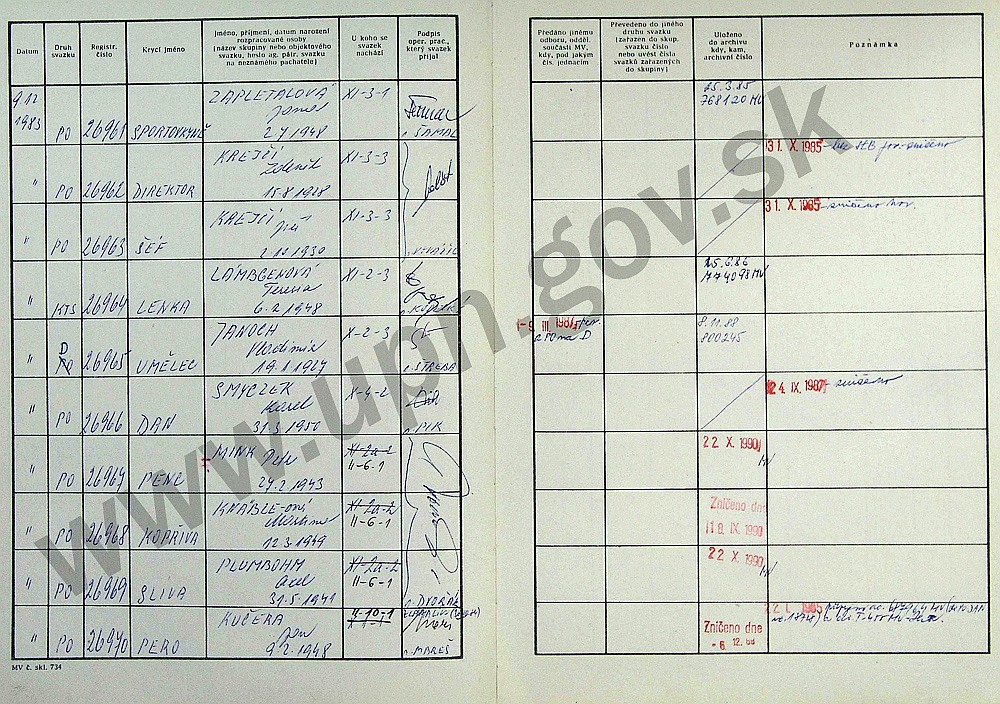 Datum
Druh svazku
Registr. číslo
Krycí jméno
Jméno, příjmení, datum narození
rozpracované osoby
(název skupiny nebo objektového
svazku, heslo ag. pátr. svazku
na neznámého pachatele)
U koho se
svazek
nachází
Podpis
oper. prac.,
který svazek
přijal
Předáno jinému
odboru, odděl.
součásti MV,
kdy, pod jakým
čís. jednacím
Převedeno do jiného
druhu svazku
(zařazen do skup.
svazku číslo
nebo uvést čísla
svazků zařazených
do skupiny)
Uloženo
do archivu
kdy, kam,
archivní číslo
Poznámka
9.12 1983 PO 26961 SPORTOVKYNĚ ZAPLETALOVÁ 2.7.1948 XI-3-1 ŠAMAL
25.3.85
768120 MV
" PO 26962 DIREKTOR KREJČÍ Zdeněk 15.8.1928 XI-3-3
31. X. 1985
" PO 26963 ŠÉF KREJČÍ Jiří 1930 XI-3-3
31. X. 1985 - zničeno
" KTS 26964 LENKA Teresia 6.2.1948 XI-2-3
25.6.86
774098 MV
" D PO 26965 UMĚLEC JANOCH Vladimír 19.1.1927 X-2-3 ŠTREBA
III. 1987
z PO na D
8.11.88
800245
" PO 26966 DAN SMYCZEK Karel 31.3.1950 X-4-2 PIK
24. IX. 1987 - zničeno
" PO 26967 PENC MINK Petr 27.2.1943 XI-2a-2 II-6-1
22 X. 1990
MV
" PO 26968 KOPŘIVA 12.3.1949 XI-2a-2 II-6-1
Zničeno dne
18. IX. 1990
" PO 26969 SLÍVA PLUMBOHM Axel 31.5.1941 XI-2a-2 II-6-1 DVOŘÁK
22 X. 1990
MV
" PO 26970 PERO KUČERA Jan 9.2.1948 MAREŠ
Zničeno dne
-6. 12. 88
22 I. 1985
MV č. skl. 734
www.upn.gov.sk